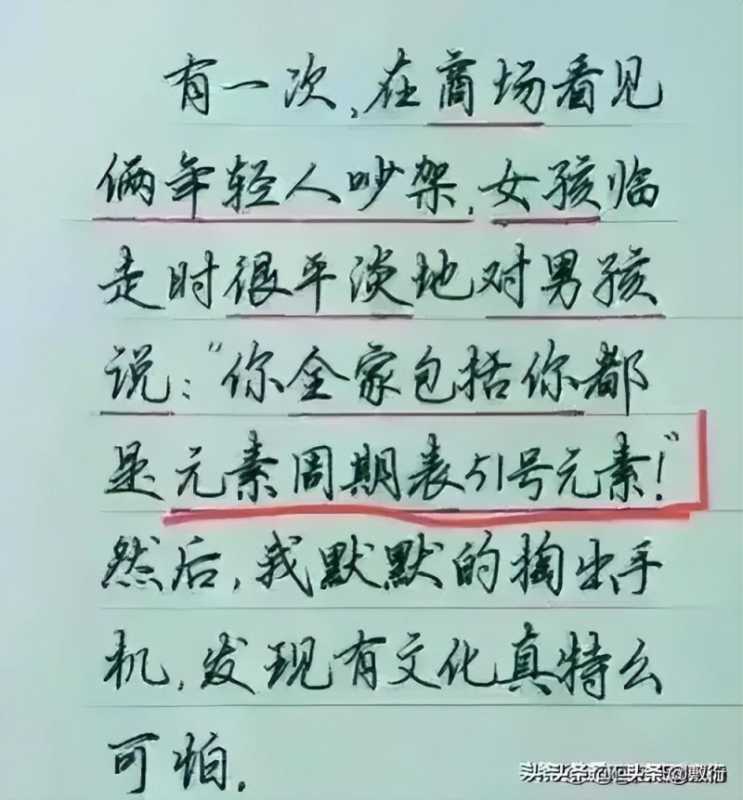 有一次,在商场看见
俩年轻人吵架,女孩临
走时很平淡地对男孩
说:"你全家包括你都
是元素周期表51号元素!"
然后,我默默的掏出手
机,发现有文化真特么
可怕.